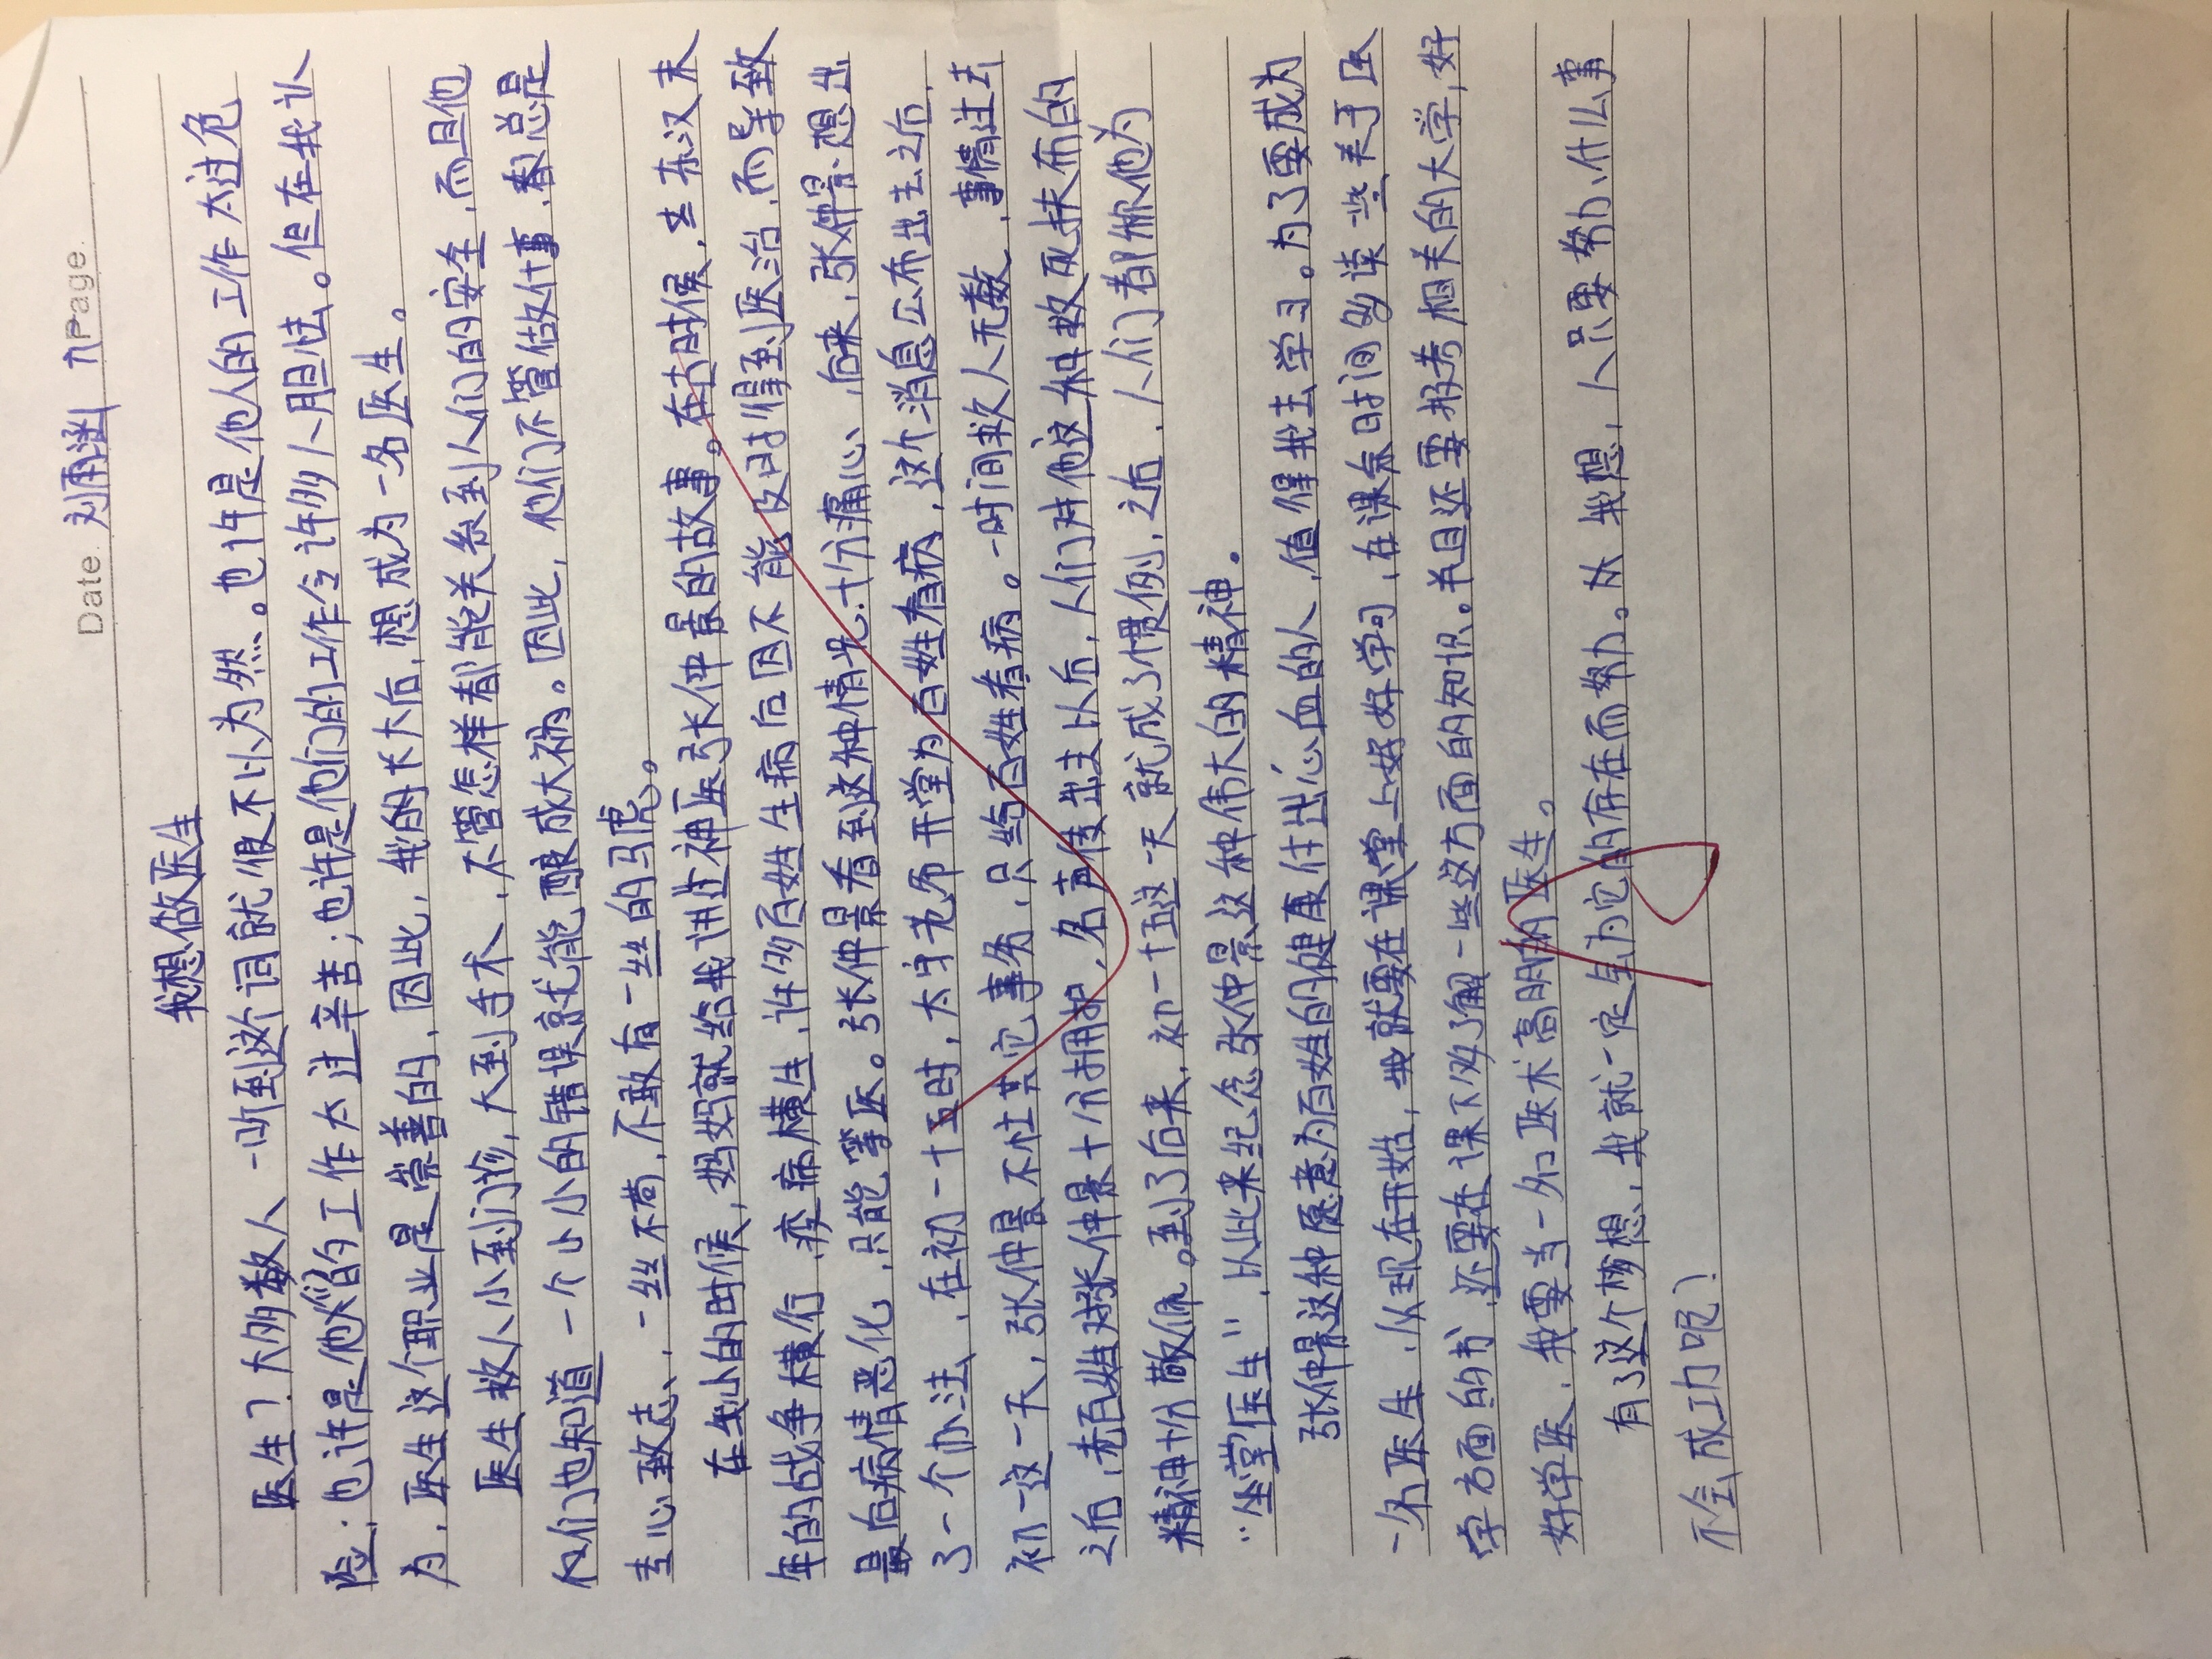 Date. 刘雨涵 九 Page.
我想做医生
医生?大多数人一听到这个词就很不以为然。也许是他人的工作太过危
险;也许是他们的工作太过辛苦;也许是他们的工作令许多人胆怯。但在我认
为,医生这个职业是崇善的,因此,我的长大后,想成为一名医生。
医生救人小到门诊,大到手术,不管怎样都能关系到人们的安全,而且他
们也知道一个小小的错误就能酿成大祸。因此,他们不管做什事,都总是
专心致志、一丝不苟,不敢有一丝的马虎。
在我小的时候,妈妈就给我讲过神医张仲景的故事。在古时候,东汉末
年的战争横行,疾病横生,许多百姓生病后因不能及时得到医治,而导致
最后病情恶化,只能等医。张仲景看到这种情况十分痛心、后来,张仲景想出
了一个办法,在初一十五时,太守老爷开堂为百姓看病,这个消息公布出去之后,
初一这一天,张仲景不住其它事务,只给百姓看病。一时间救人无数,事情过去
之后,老百姓对张仲景十分拥护,名声传出去以后,人们对他这种救死扶伤的
精神十分敬佩。到了后来,初一十五这一天就成了惯例,之后,人们都称他为
“坐堂医生”,以此来纪念张仲景这种伟大的精神。
张仲景这种愿意为百姓的健康付出心血的人,值得我去学习。为了要成为
一名医生,从现在开始,我就要在课堂上好好学习,在课余时间多读一些关于医
学方面的书,还要在课下多了解一些这方面的知识。并且还要报考相关的大学,好
好学医,我要当一名医术高明的医生。
有了这个梦想,我就一定会为它的存在而努力。从我想,人只要努力,什么事
不会成功呢?